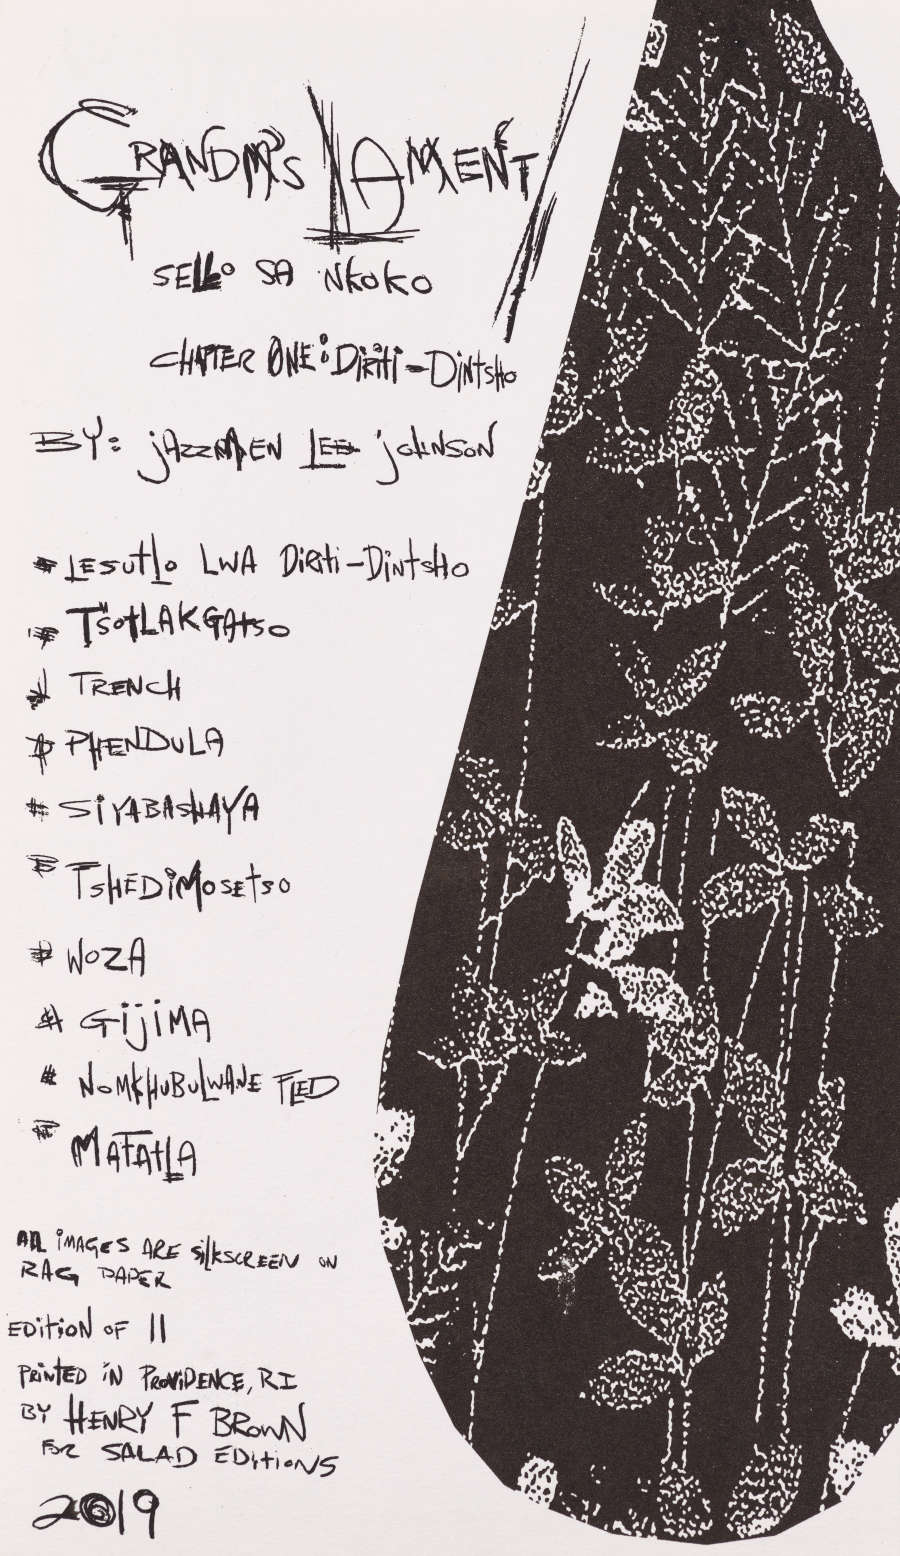 GRANDMA'S LAMENT
SELLO SA NKOKO
CHAPTER ONE: DIRITI-DINTSHO
BY: JAZZMEN LEE JOHNSON
LESUTLO LWA DIRITI-DINTSHO
TSOTLAKGATSO
TRENCH
PHENDULA
SIYABASHAYA
TSHEDIMOSETSO
WOZA
GIJIMA
NOMKHUBULWANE FLED
MAFATLA
ALL IMAGES ARE SILKSCREEN ON
RAG PAPER
EDITION OF 11
PRINTED IN PROVIDENCE, RI
BY HENRY F BROWN
FOR SALAD EDITIONS
2019